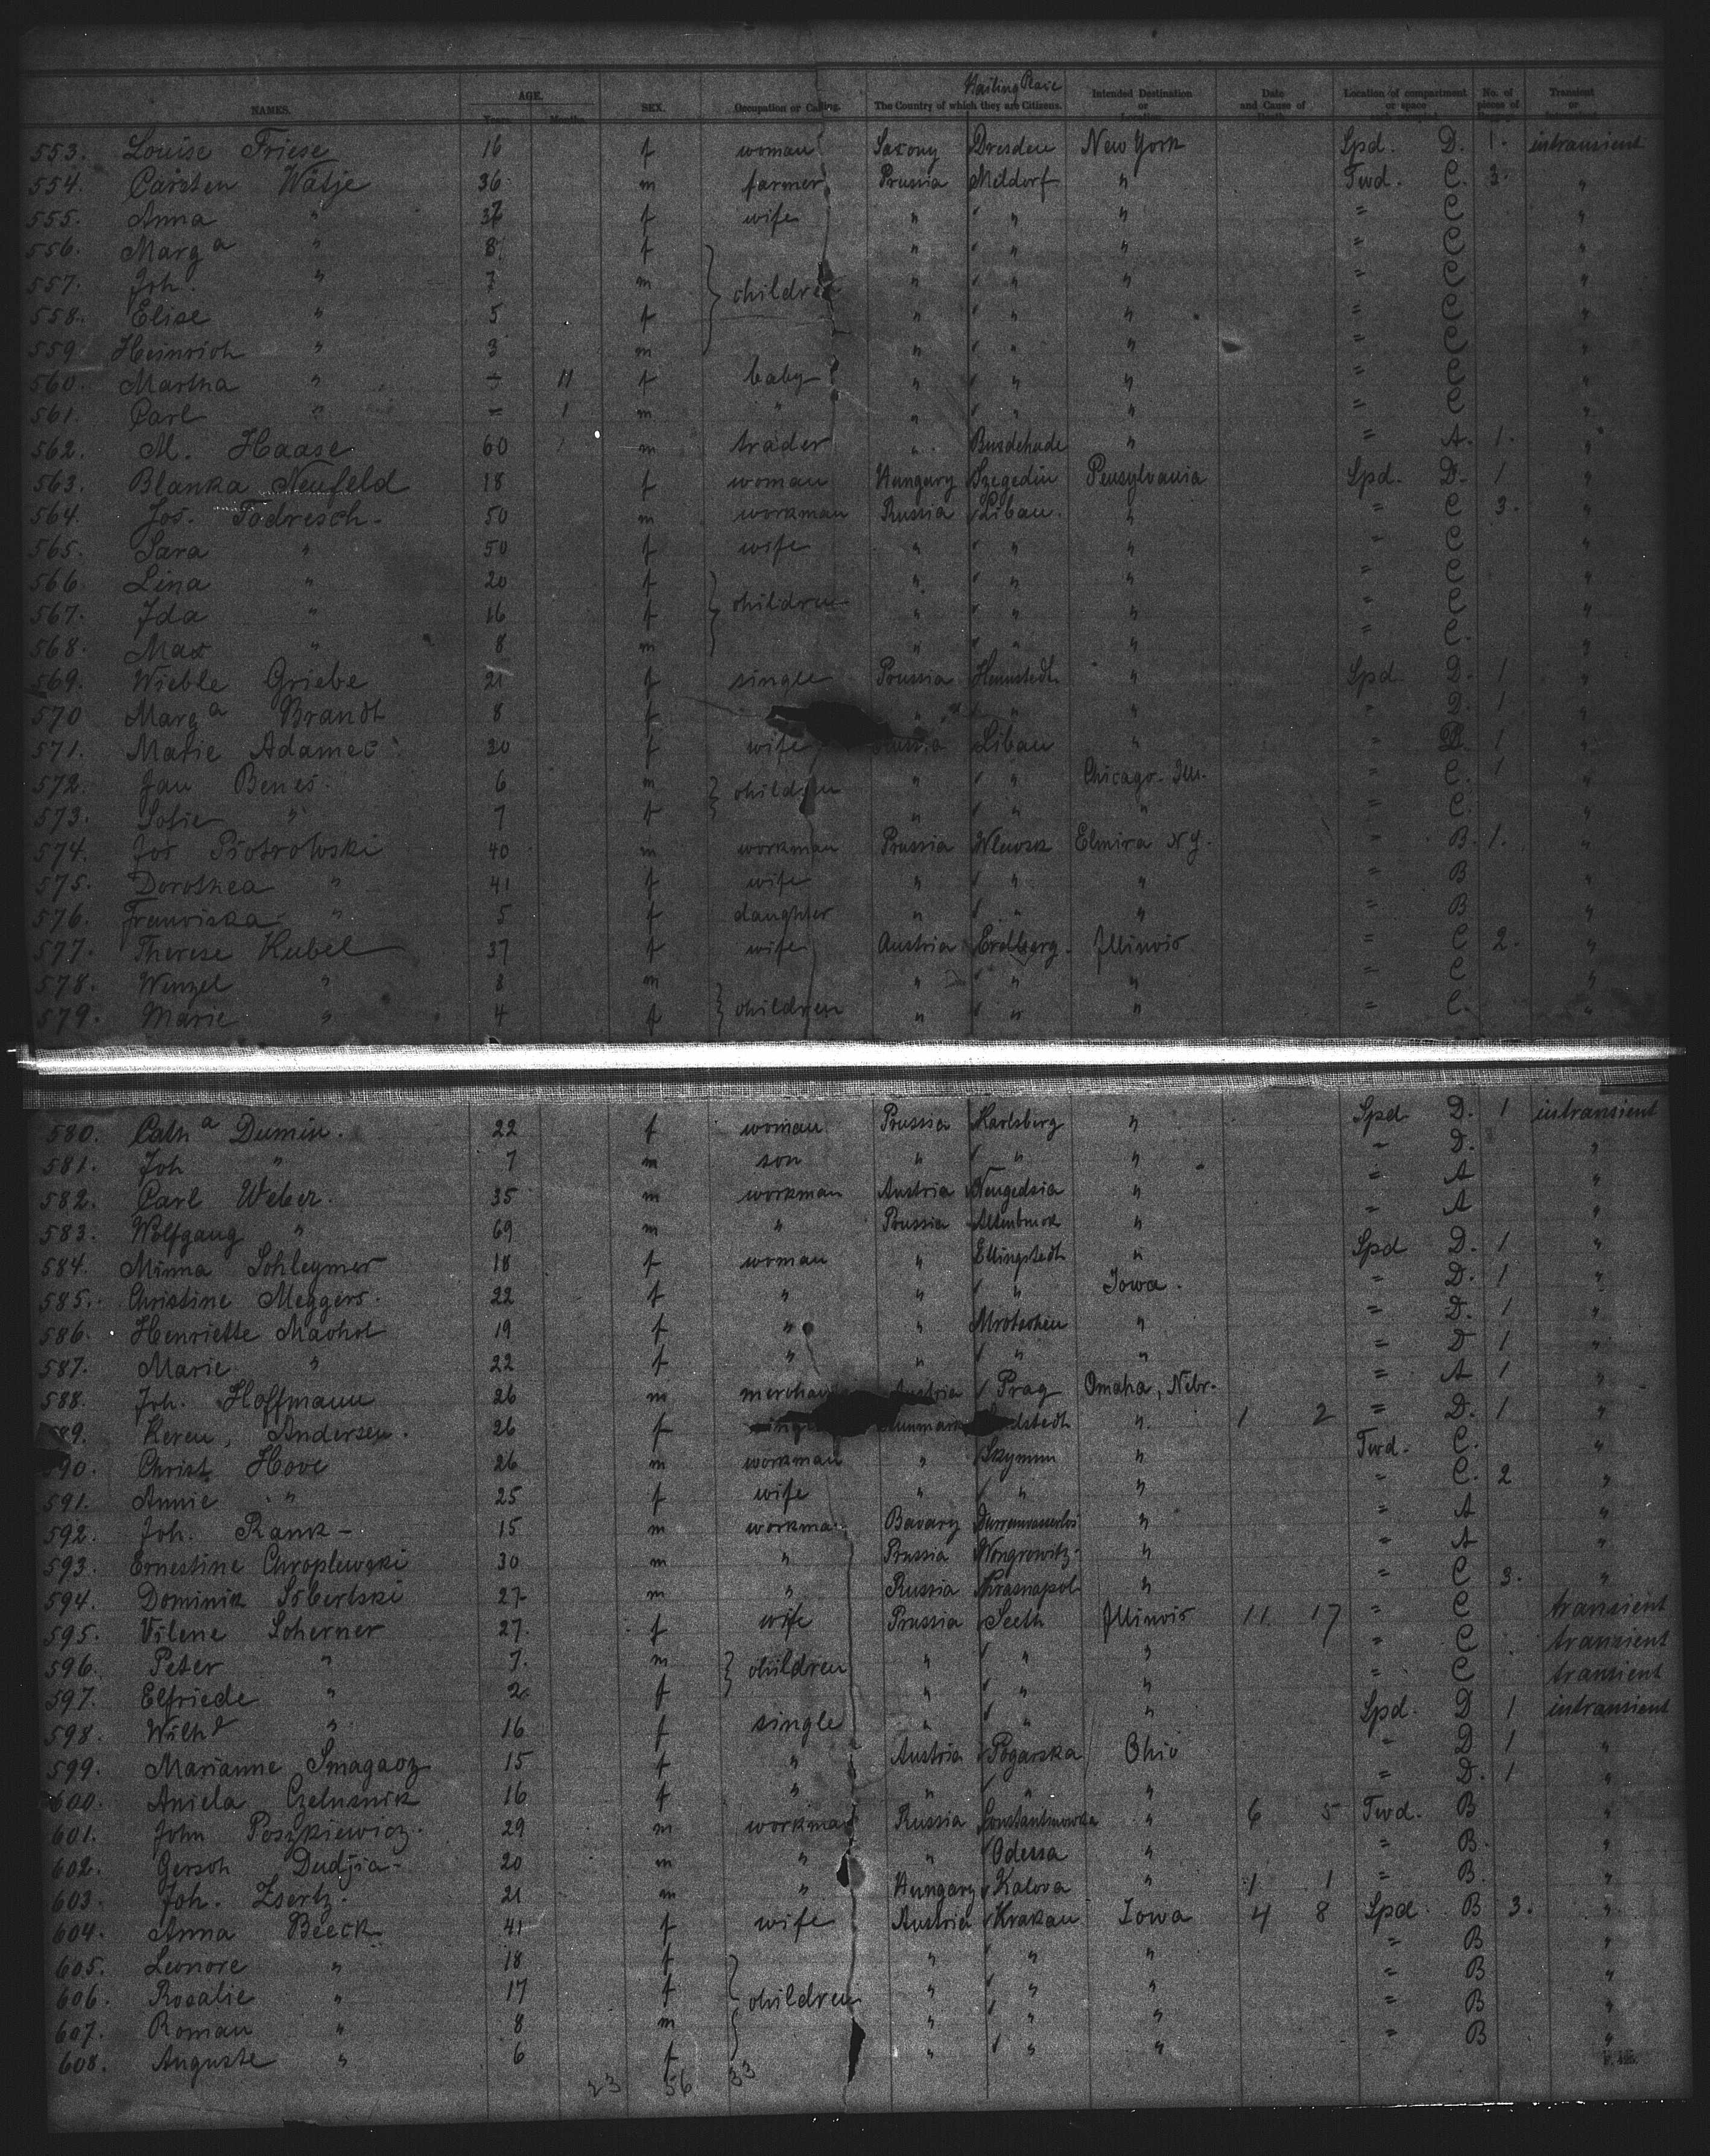 NAMES. AGE. Years. Months. SEX. Occupation or Calling. The Country of which they are Citizens. Nailing Place Intended Destination or Location. Date and Cause of Death. Location of compartment or space No. of pieces of Transient or
553. Louise Friese 16 f woman Saxony Dresden New York Spd. D. 1. intransient
554. Carsten Wätje 36 m farmer Prussia Meldorf " Twd. C. 3. "
555. Anna " f wife " " " = C "
556. Marg a " 8 f " " " = C "
557. Joh. " 7 m } children " " " = C "
558. Elise " 5 f " " " = C "
559. Heinrich " 3 m " " " = C "
560. Martha " - 11 f baby " " " = C "
561. Carl " - 1 m " " " " = C "
562. M. Haase 60 m trader " Buxdehude " = A. 1. "
563. Blanka Neufeld 18 f woman Hungary Szegedin Pensylvania Spd. D. 1 "
564. Jos. Todresch. 50 m workman Russia Libau. " = C 3. "
565. Sara " 50 f wife " " " = C "
566. Lina " 20 f } children " " " = C "
567. Ida " 16 f " " " = C "
568. Max " 8 m " " " = C. "
569. Wieble Griebe 21 f single Prussia Hennstedt " Spd. D. 1 "
570 Marg a Brandt 8 f " " " D. 1 "
571. Marie Adamec 20 f wife Russia Libau " D. 1 "
572. Jan Benes. 6 m } children " " Chicago. Ill. = C. 1 "
573. Sofie " 7 f " " " = C. "
574. Jos Piotrowski 40 m workman Prussia Elmira N.Y. = B. 1. "
575. Dorothea " 41 f wife " " " = B "
576. Franziska " 5 f daughter " " " = B "
577. Therese Kubel 37 f wife Austria Illinois = C 2. "
578. Wenzel " 8 m } children " " " = C "
579. Marie " 4 f " " " = C. "
580. Cath a Dumin. 22 f woman Prussia Karlsberg " Spd D. 1 intransient
581. Joh " 7 m son " " " = D. "
582. Carl Weber. 35 m workman Austria " = A "
583. Wolfgang " 69 m " Prussia " = A "
584. Minna Schleymer 18 f woman " Ellingstedt " Spd D. 1 "
585. Christine Meggers. 22 f " " " Iowa. = D. 1 "
586. Henriette Machol 19 f " " Mrotschen " = D. 1 "
587. Marie " 22 f " " " " = D 1 "
588. Joh. Hoffmann 26 m merchant Austria Prag Omaha, Nebr. = A 1 "
589. Keren, Andersen. 26 f Denmark " 1 2 = D. 1 "
590. Christ Hove 26 m workman " " Twd. C. "
591. Annie " 25 f wife " " " = C. 2 "
592. Joh. Rank - 15 m workman Bavary " = A "
593. Ernestine Chroplewski 30 m " Prussia Wongrowitz. " = A "
594. Dominik 27 m " Russia Krasnapol " = C 3. "
595. Vilene Scherner 27. f wife Prussia Seeth Illinois 11 17 = C transient
596. Peter " 7. m } children " " " = C transient
597. Elfriede " 2 f " " " = C transient
598. Wilh " 16 f single " " " Spd. D 1 intransient
599. Marianne Smagacz 15 f " Austria Pogarska Ohio = D 1 "
600. Aniela Czelusnik 16 f " " " " = D. 1 "
601. John Poszkiewicz. 29 m workman Russia Constantinowka " 6 5 Twd. B "
602. Gersch Dudjia - 20 m " " Odessa " = B. "
603. Joh. Zsertz. 21 m " Hungary Kalova " 1 1 = B. "
604. Anna Beeck 41 f wife Austria Krakau Iowa 4 8 Spd. B 3. "
605. Leonore " 18 f " " " = B "
606. Rosalie " 17 f } children " " " = B "
607. Roman " 8 m " " " = B "
608. Auguste " 6 f " " " = B "
23 56 33